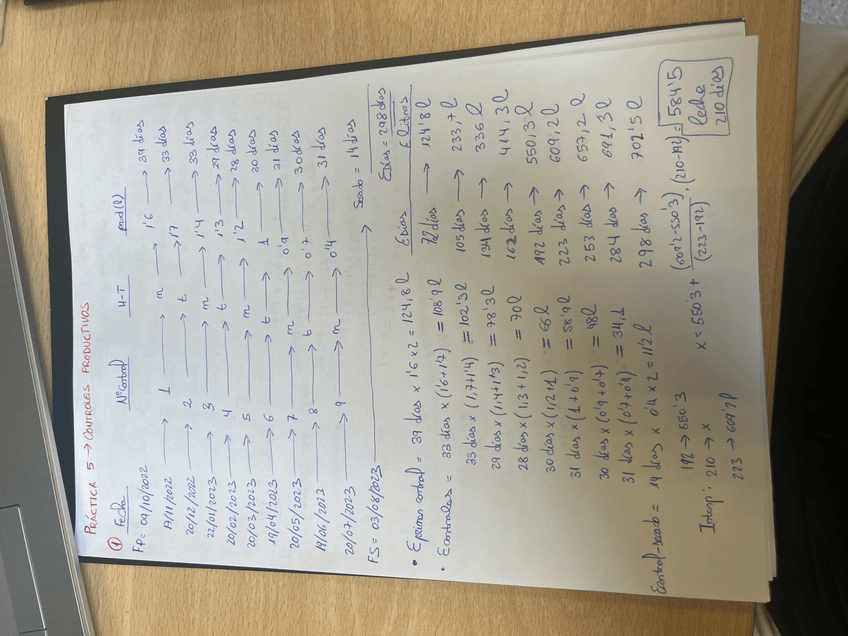 PRÁCTICA 5 → CONTROLES PRODUCTIVOS
① Fecha Nº Control M-T prod (l)
FP = 09/10/2022
17/11/2022 → 1 → m → 1'6 → 39 días
20/12/2022 → 2 → t → 1'7 → 33 días
22/01/2023 → 3 → m → 1'4 → 33 días
20/02/2023 → 4 → t → 1'3 → 29 días
20/03/2023 → 5 → m → 1'2 → 28 días
19/04/2023 → 6 → t → 1 → 30 días
20/05/2023 → 7 → m → 0'9 → 31 días
19/06/2023 → 8 → t → 0'7 → 30 días
20/07/2023 → 9 → m → 0'4 → 31 días
FS = 03/08/2023 → Secado = 14 días
Σ días = 298 días
• E primer control = 39 días x 1'6 x 2 = 124,8 l
• E controles = 33 días x (1'6 + 1'7) = 108'9 l
33 días x (1,7 + 1'4) = 102'3 l
29 días x (1,4 + 1'3) = 78'3 l
28 días x (1,3 + 1,2) = 70 l
30 días x (1,2 + 1) = 66 l
31 días x (1 + 0'9) = 58'9 l
30 días x (0'9 + 0'7) = 48 l
31 días x (0'7 + 0'4) = 34,1
E control-secado = 14 días x 0'4 x 2 = 11'2 l
Σ días Σ litros
72 días → 124'8 l
105 días → 233,7 l
134 días → 336 l
162 días → 414,3 l
192 días → 550,3 l
223 días → 609,2 l
253 días → 657,2 l
284 días → 691,3 l
298 días → 702'5 l
192 → 550'3
Interp: 210 → x
223 → 609'2 l
x = 550'3 + (609'2 - 550'3) / (223 - 192) · (210 - 192) = 584'5
leche
210 días